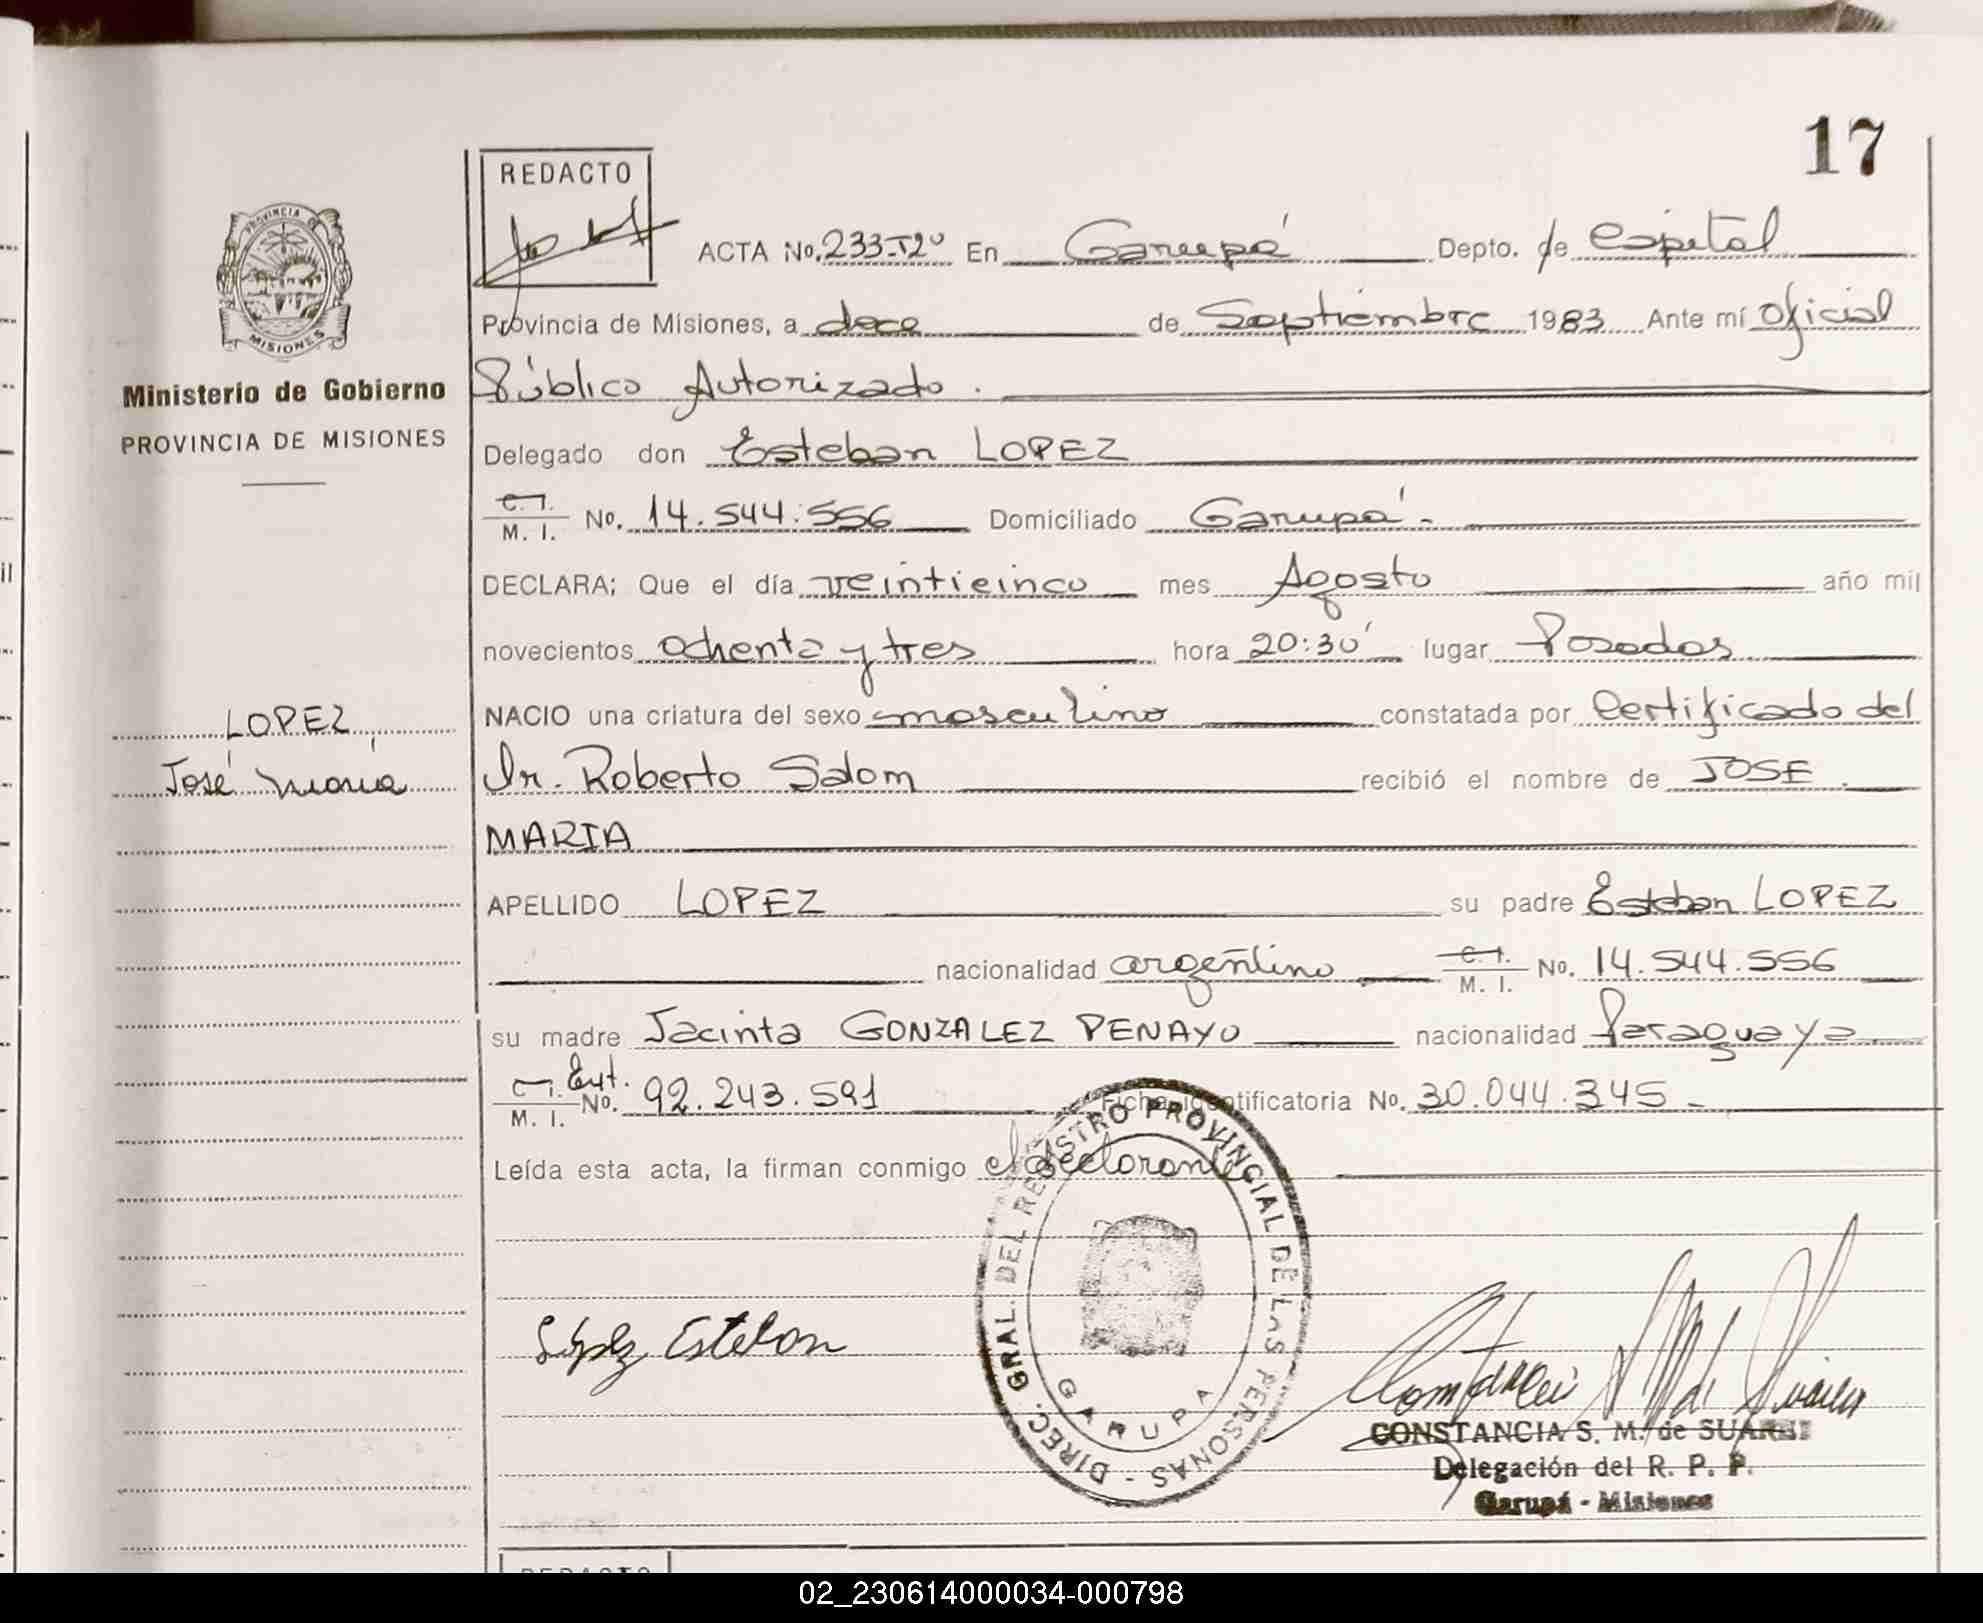 17
REDACTO
ACTA No. 233-T2º En Garupá Depto. de Capital
Provincia de Misiones, a doce de Septiembre 1983 Ante mí Oficial
Público Autorizado.
PROVINCIA DE MISIONES
Ministerio de Gobierno
PROVINCIA DE MISIONES
Delegado don Esteban LOPEZ
C. I. M. I. No. 14.544.556 Domiciliado Garupá.-
DECLARA; Que el día veinticinco mes Agosto año mil
novecientos ochenta y tres hora 20:30' lugar Posadas
NACIO una criatura del sexo masculino constatada por Certificado del
LOPEZ,
José María
Dr. Roberto Salom recibió el nombre de JOSE
MARIA
APELLIDO LOPEZ su padre Esteban LOPEZ
nacionalidad argentino C. I. M. I. No. 14.544.556
su madre Jacinta GONZALEZ PENAYO nacionalidad Paraguaya
C. I. M. I. Ext. No. 92.243.591 Ficha identificatoria No. 30.044.345-
Leída esta acta, la firman conmigo el declorante
DIREC. GRAL. DEL REGISTRO PROVINCIAL DE LAS PERSONAS -
GARUPA
López Esteban
CONSTANCIA S. M. de SUAREZ
Delegación del R. P. P.
Garupá - Misiones
REDACTO
02_230614000034-000798